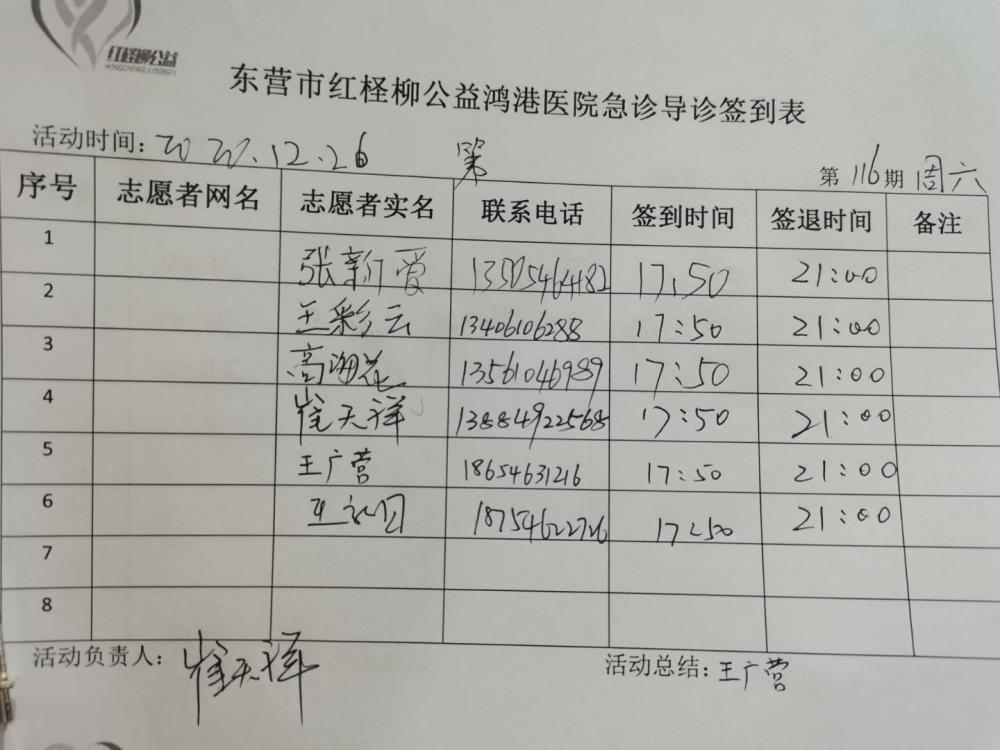 红柽柳公益
东营市红柽柳公益鸿港医院急诊导诊签到表
活动时间：2020.12.26 第
第 116 期 周六
序号 志愿者网名 志愿者实名 联系电话 签到时间 签退时间 备注
1 张新爱 13505464482 17:50 21:00
2 王彩云 13406106288 17:50 21:00
3 高海花 13561046989 17:50 21:00
4 崔天祥 13884922568 17:50 21:00
5 王广营 18654631216 17:50 21:00
6 18754622726 17:50 21:00
7
8
活动负责人：崔天祥 活动总结：王广营